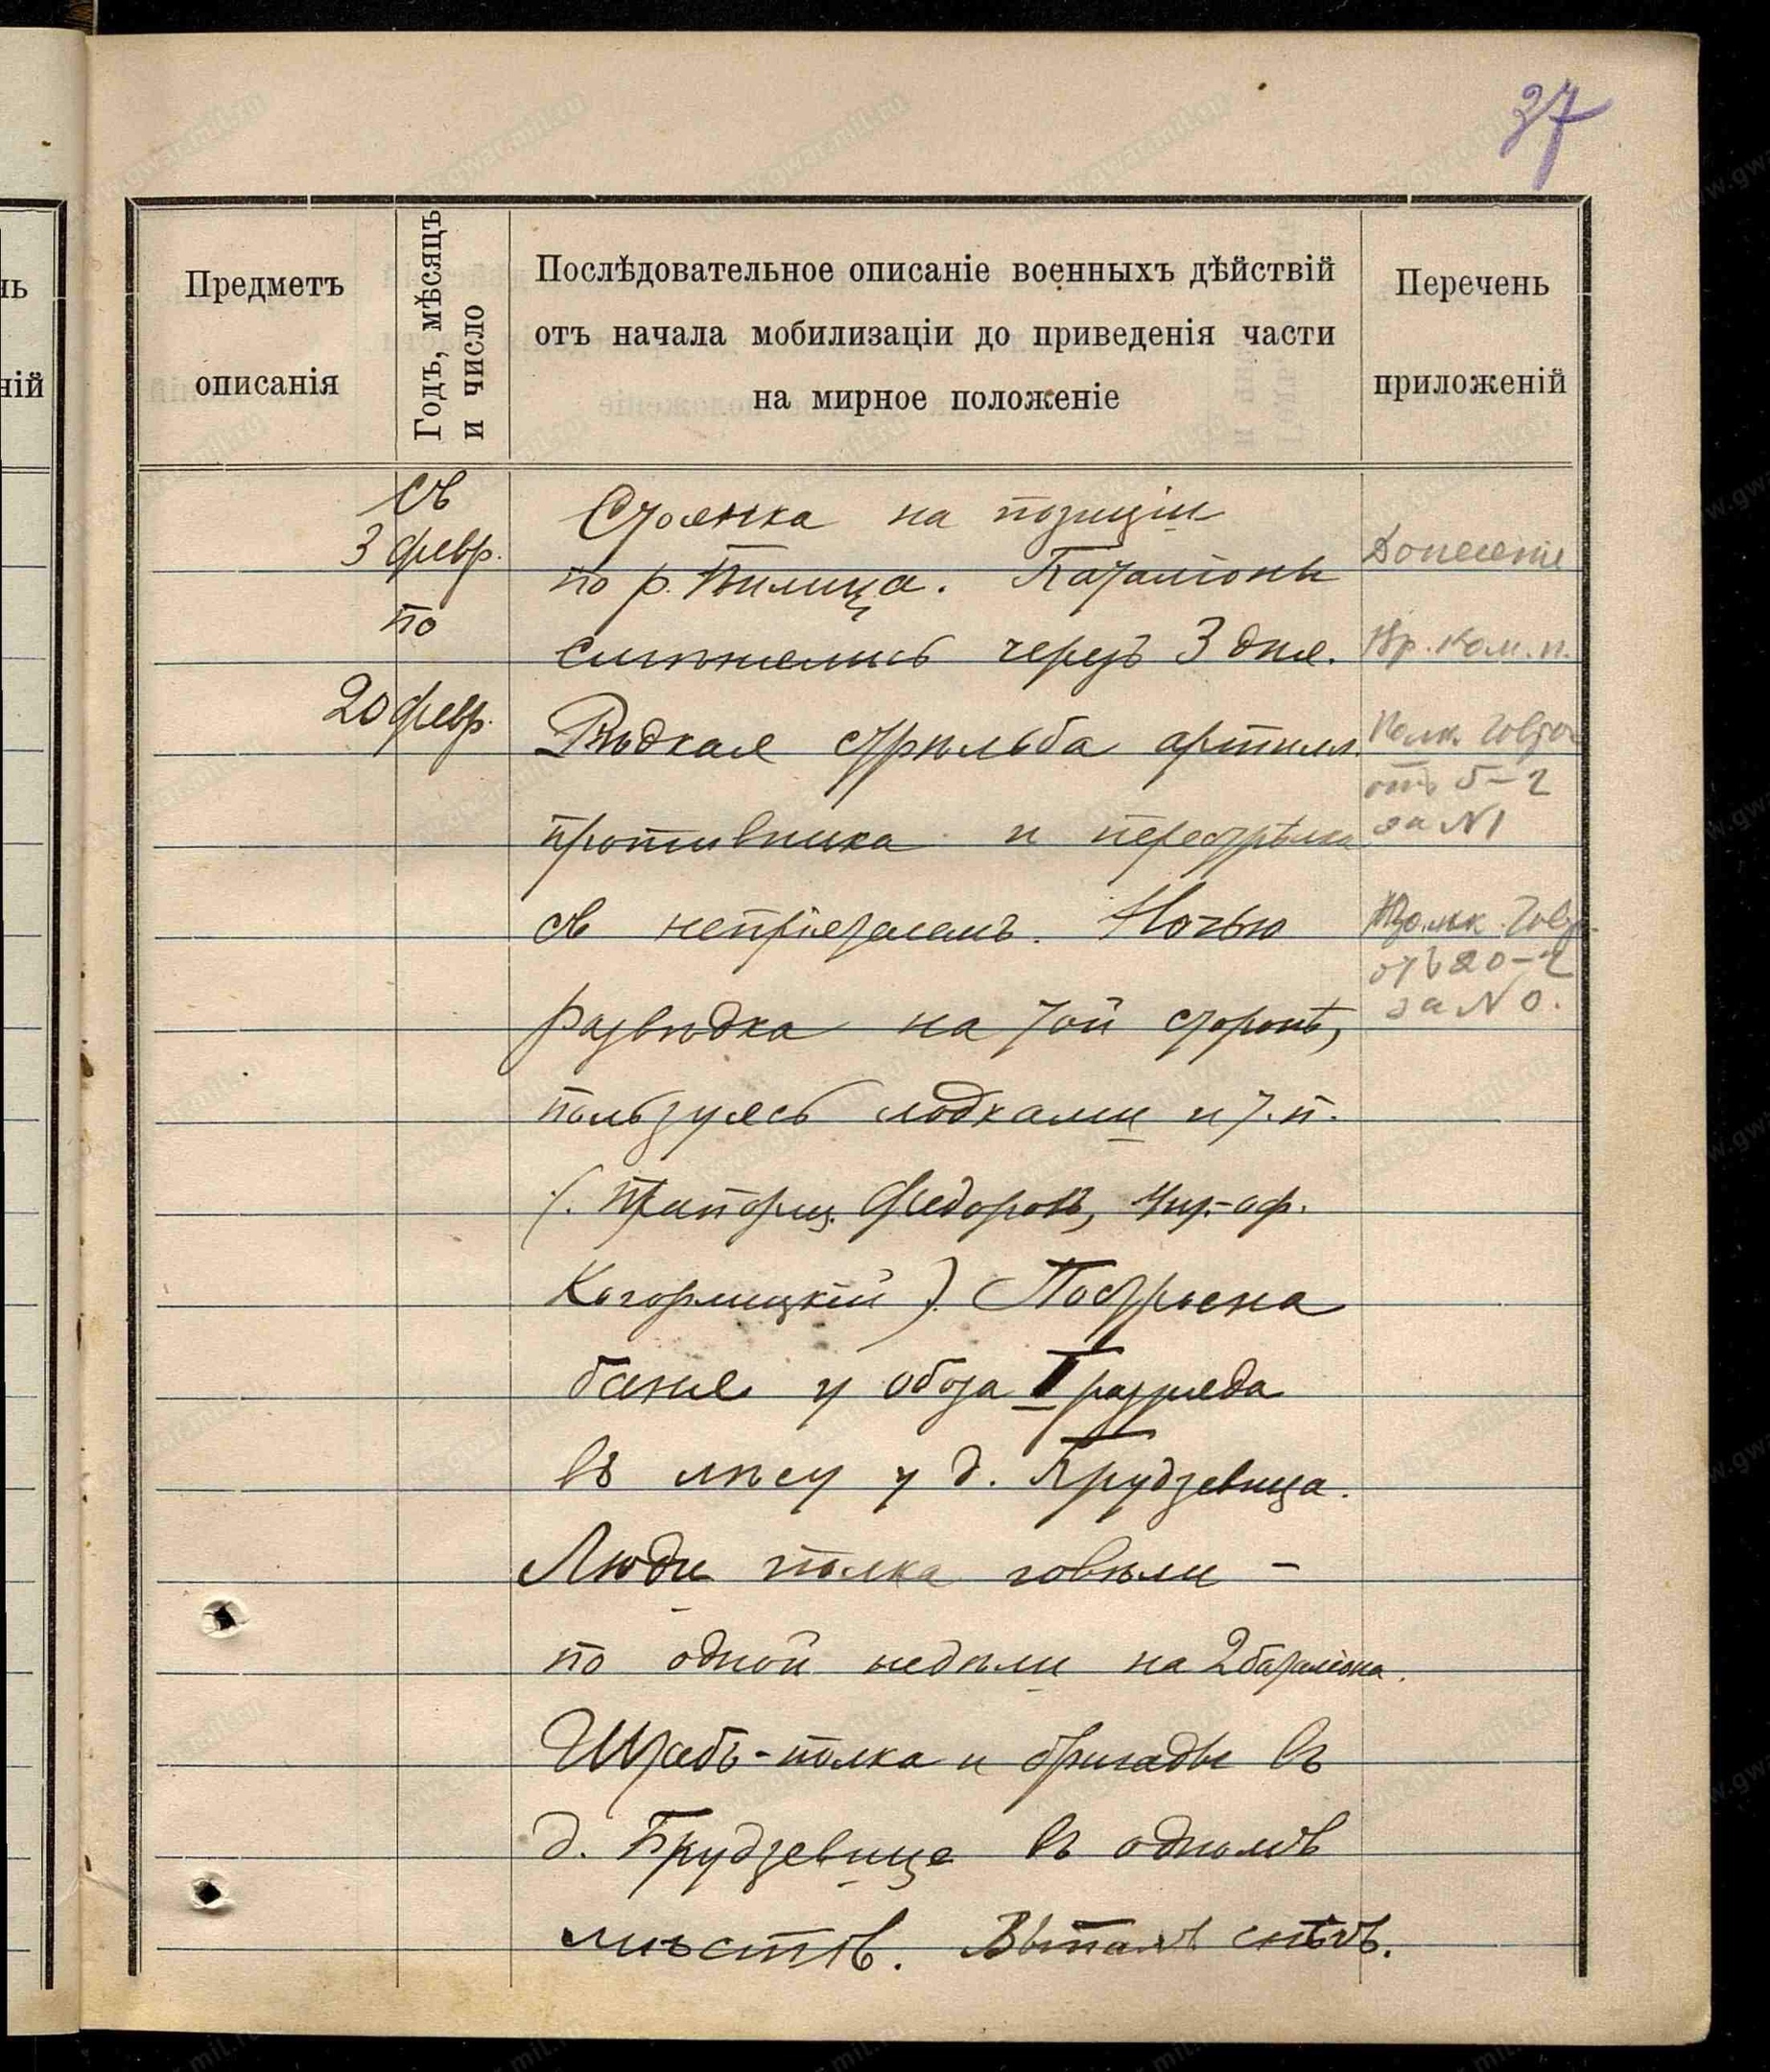 37
Предметъ
описанія
Годъ, мѣсяцъ
и число
Послѣдовательное описаніе военныхъ дѣйствій
отъ начала мобилизаціи до приведенія части
на мирное положеніе
Перечень
приложеній
съ
3 февр.
по
20 февр.
Стоянка на позиціи
по р. Пилица. Баталіоны
смѣнялись черезъ 3 дня.
Рѣдкая стрѣльба артилл.
противника и перестрѣлка
съ непріятелемъ. Ночью
развѣдка на той сторонѣ,
пользуясь лодками и т.п.
(. Прапорщ. Федоровъ, Унт.-оф.
). Построена
баня у обоза I разряда
въ лѣсу у д. Брудзевица.
Люди полка говѣли -
по одной недѣли на 2 баталіона.
Штабъ-полка и бригады въ
д. Брудзевице въ одномъ
мѣстѣ. Выпалъ снѣгъ.
Донесеніе
Вр. Ком. п.
Полк.
отъ 5-2
за N1
отъ 20-2
за N 0.
нь
ній
www.gwar.mil.ru